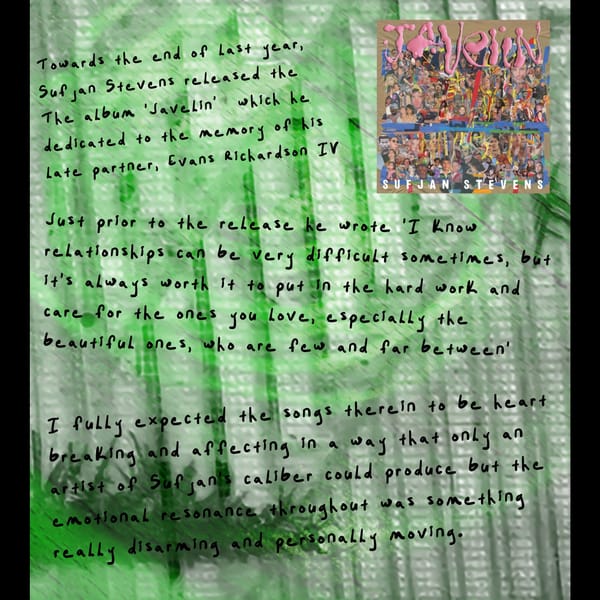 Towards the end of last year,
Sufjan Stevens released the
The album 'Javelin' which he
dedicated to the memory of his
late partner, Evans Richardson IV
JAVELIN
SUFJAN STEVENS
Just prior to the release he wrote 'I know
relationships can be very difficult sometimes, but
it's always worth it to put in the hard work and
care for the ones you love, especially the
beautiful ones, who are few and far between'
I fully expected the songs therein to be heart
breaking and affecting in a way that only an
artist of Sufjan's caliber could produce but the
emotional resonance throughout was something
really disarming and personally moving.